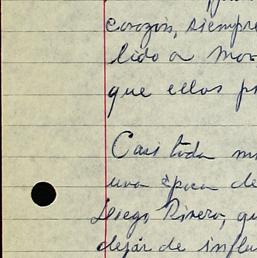 corazón, siempre
lido a
que ellos
Casi toda
una época de
Diego Rivera, qu
dejár de influ